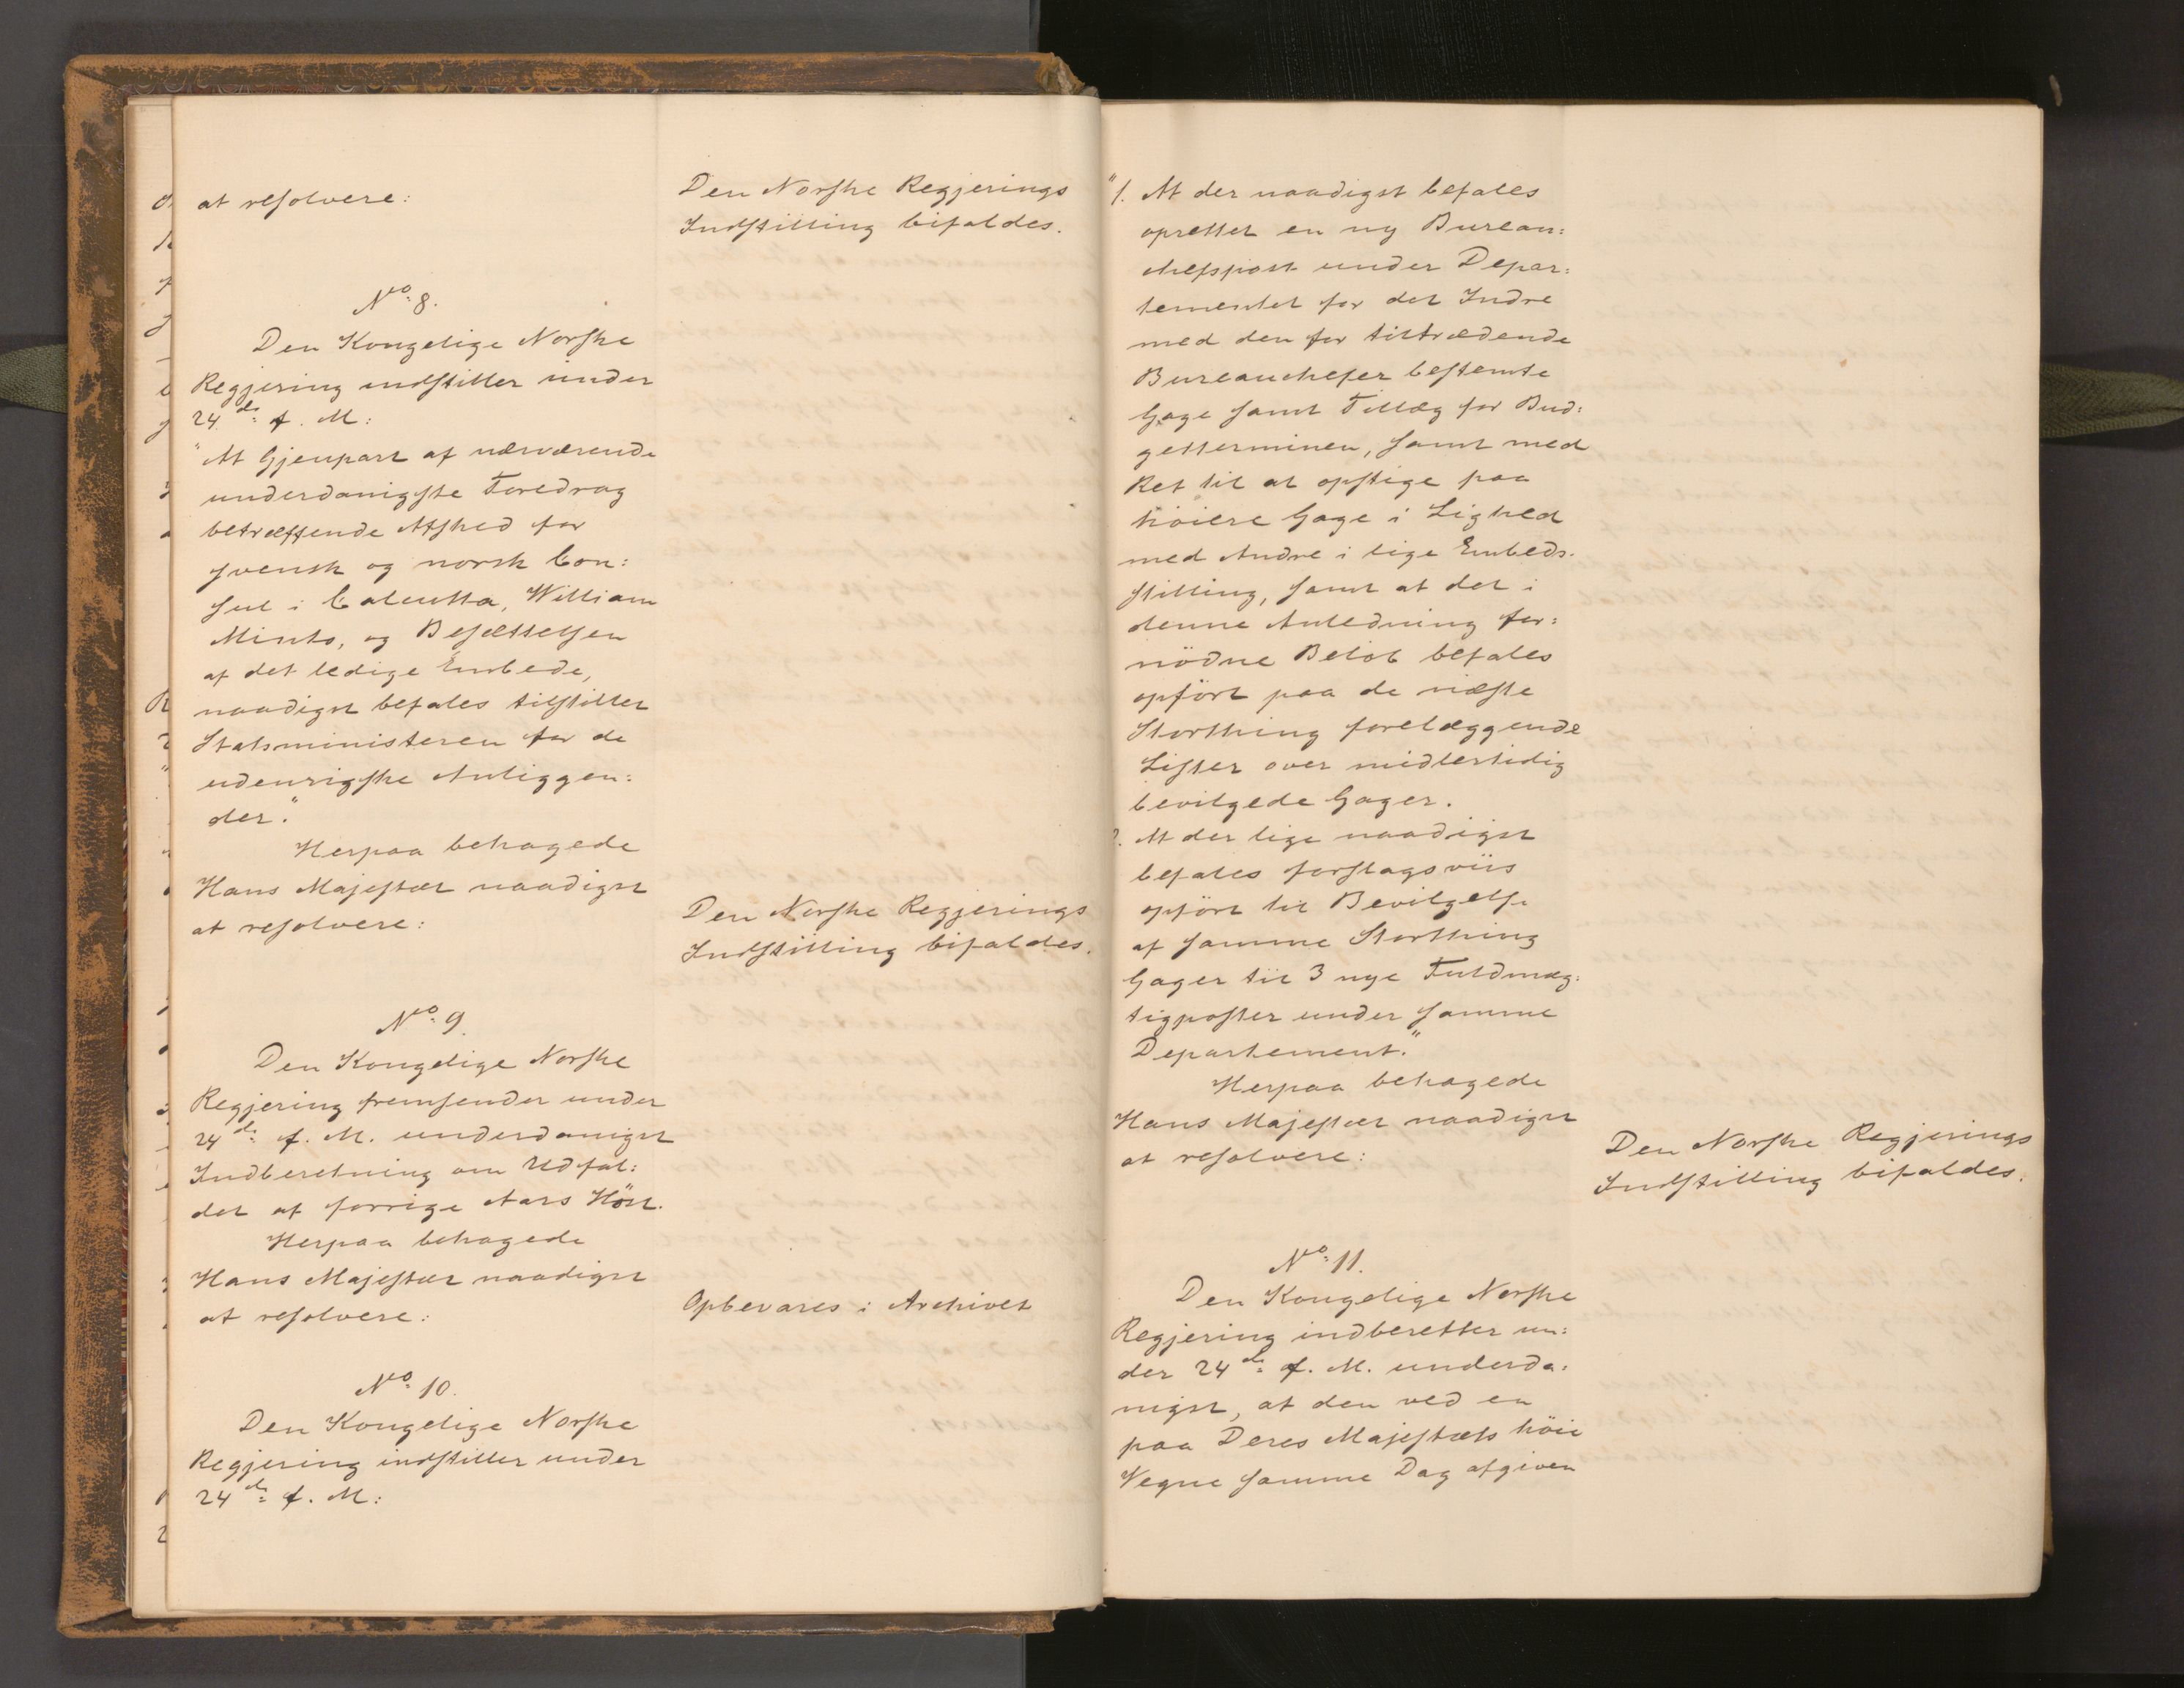 at resolvere:
Den Norske Regjerings
Indstilling bifaldes.
No. 8.
Den Kongelige Norske
Regjering indstiller under
24de f. M:
"At Gjenpart af nærværende
underdanigste Foredrag
betræffende Afsked for
svensk og norsk Con:
sul i Calcutta, William
Minto, og Besættelsen
af det ledige Embede,
naadigst befales tilstillet
Statsministeren for de
udenrigske Anliggen:
der."
Herpaa behagede
Hans Majestæt naadigst
at resolvere:
Den Norske Regjerings
Indstilling bifaldes.
No. 9.
Den Kongelige Norske
Regjering fremsender under
24de f. M. underdanigst
Indberetning om Udfal:
det af forrige Aars Höst.
Herpaa behagede
Hans Majestæt naadigst
at resolvere:
Opbevares i Archivet
No. 10.
Den Kongelige Norske
Regjering indstiller under
24de f. M:
"1. At der naadigst befales
oprettet en ny Bureau:
chefspost under Depar:
tementet for det Indre
med den for tiltrædende
Bureauchefer bestemte
Gage samt Tillæg for Bud:
getterminen, samt med
Ret til at opstige paa
höiere Gage i Lighed
med Andre i lige Embeds-
stilling, samt at det i
denne Anledning for:
nödne Belöb befales
opfört paa de næste
Storthing forelæggende
Lister over midlertidig
bevilgede Gager.
2. At der lige naadigst
befales forslagsviis
opfört til Bevilgelse
af samme Storthing
Gager til 3 nye Fuldmæg:
tigposter under samme
Departement."
Herpaa behagede
Hans Majestæt naadigst
at resolvere:
Den Norske Regjerings
Indstilling bifaldes.
No. 11.
Den Kongelige Norske
Regjering indberetter un:
der 24de f. M. underda:
nigst, at den ved en
paa Deres Majestæts höie
Vegne samme Dag afgiven